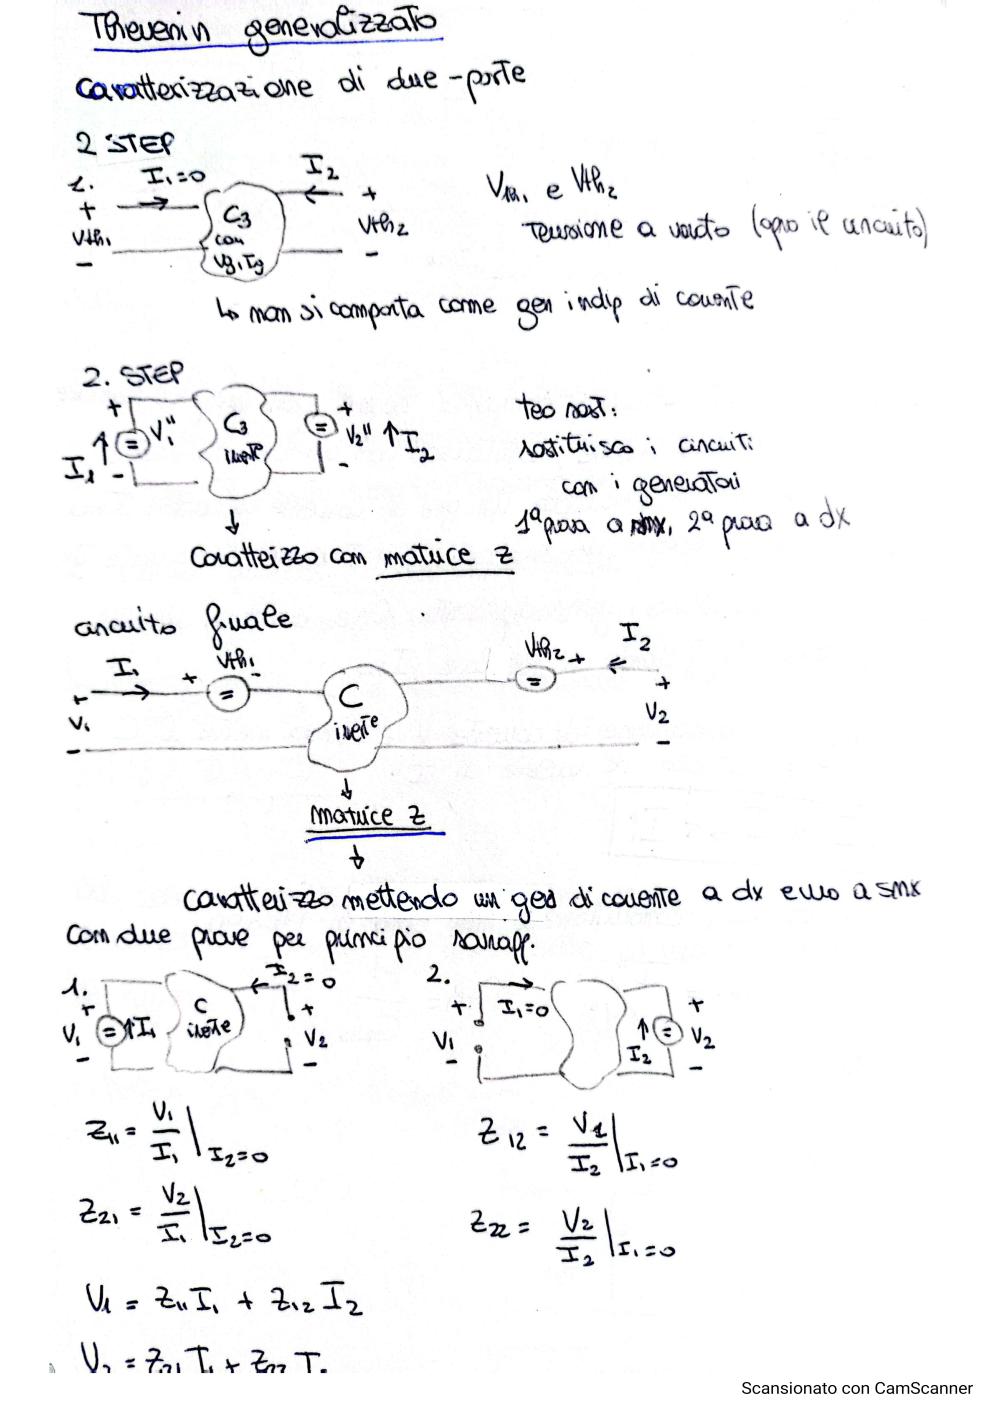 Thevenin generalizzato
caratterizzazione di due-porte
2 STEP
1. I₁=0 I₂
+ +
Vth₁ C₃ Vth₂
con
Vg, Ig
- -
Vth₁ e Vth₂
tensione a vuoto (apro il circuito)
↳ non si comporta come gen indip di corrente
2. STEP
+ +
I₁ V₁'' C₃ V₂'' I₂
inerte
- -
teo sost:
sostituisco i circuiti
con i generatori
1ª prova a smx, 2ª prova a dx
Caratterizzo con matrice Z
circuito finale
I₁ + Vth₁ - Vth₂ + I₂
+ +
V₁ C V₂
inerte
- -
matrice Z
caratterizzo mettendo un gen di corrente a dx e uno a smx
Con due prove per principio sovrapp.
1. I₂=0
+ +
V₁ I₁ C V₂
inerte
- -
2.
+ I₁=0 +
V₁ I₂ V₂
- -
Z₁₁ = V₁/I₁ |I₂=0 Z₁₂ = V₁/I₂ |I₁=0
Z₂₁ = V₂/I₁ |I₂=0 Z₂₂ = V₂/I₂ |I₁=0
V₁ = Z₁₁ I₁ + Z₁₂ I₂
V₂ = Z₂₁ I₁ + Z₂₂ I₂
Scansionato con CamScanner